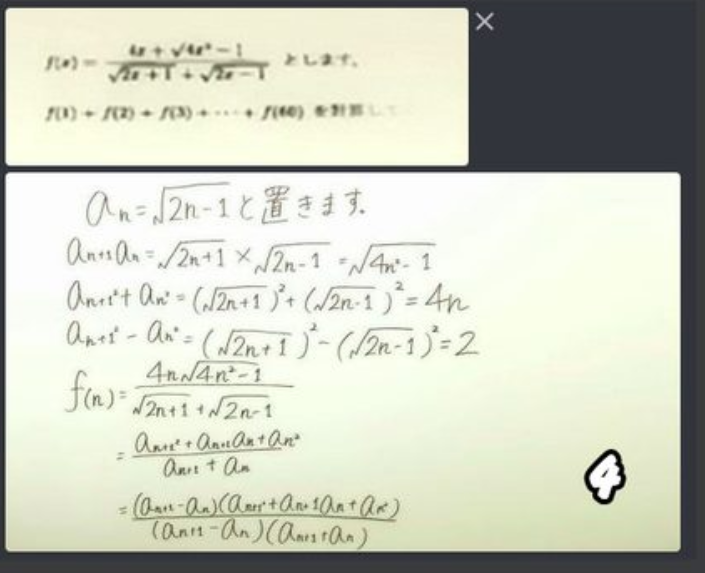 f(x) = (4x + √(4x² − 1)) / (√(2x+1) + √(2x−1)) とします。
f(1) + f(2) + f(3) + ⋯ + f(60) を計算して
aₙ = √(2n-1) と置きます.
aₙ₊₁aₙ = √(2n+1) × √(2n-1) = √(4n²-1)
aₙ₊₁² + aₙ² = (√(2n+1))² + (√(2n-1))² = 4n
aₙ₊₁² - aₙ² = (√(2n+1))² - (√(2n-1))² = 2
f(n) = (4n√(4n²-1)) / (√(2n+1) + √(2n-1))
= (aₙ₊₁² + aₙ₊₁aₙ + aₙ²) / (aₙ₊₁ + aₙ)
= (aₙ₊₁ - aₙ)(aₙ₊₁² + aₙ₊₁aₙ + aₙ²) / (aₙ₊₁ - aₙ)(aₙ₊₁ + aₙ)
4